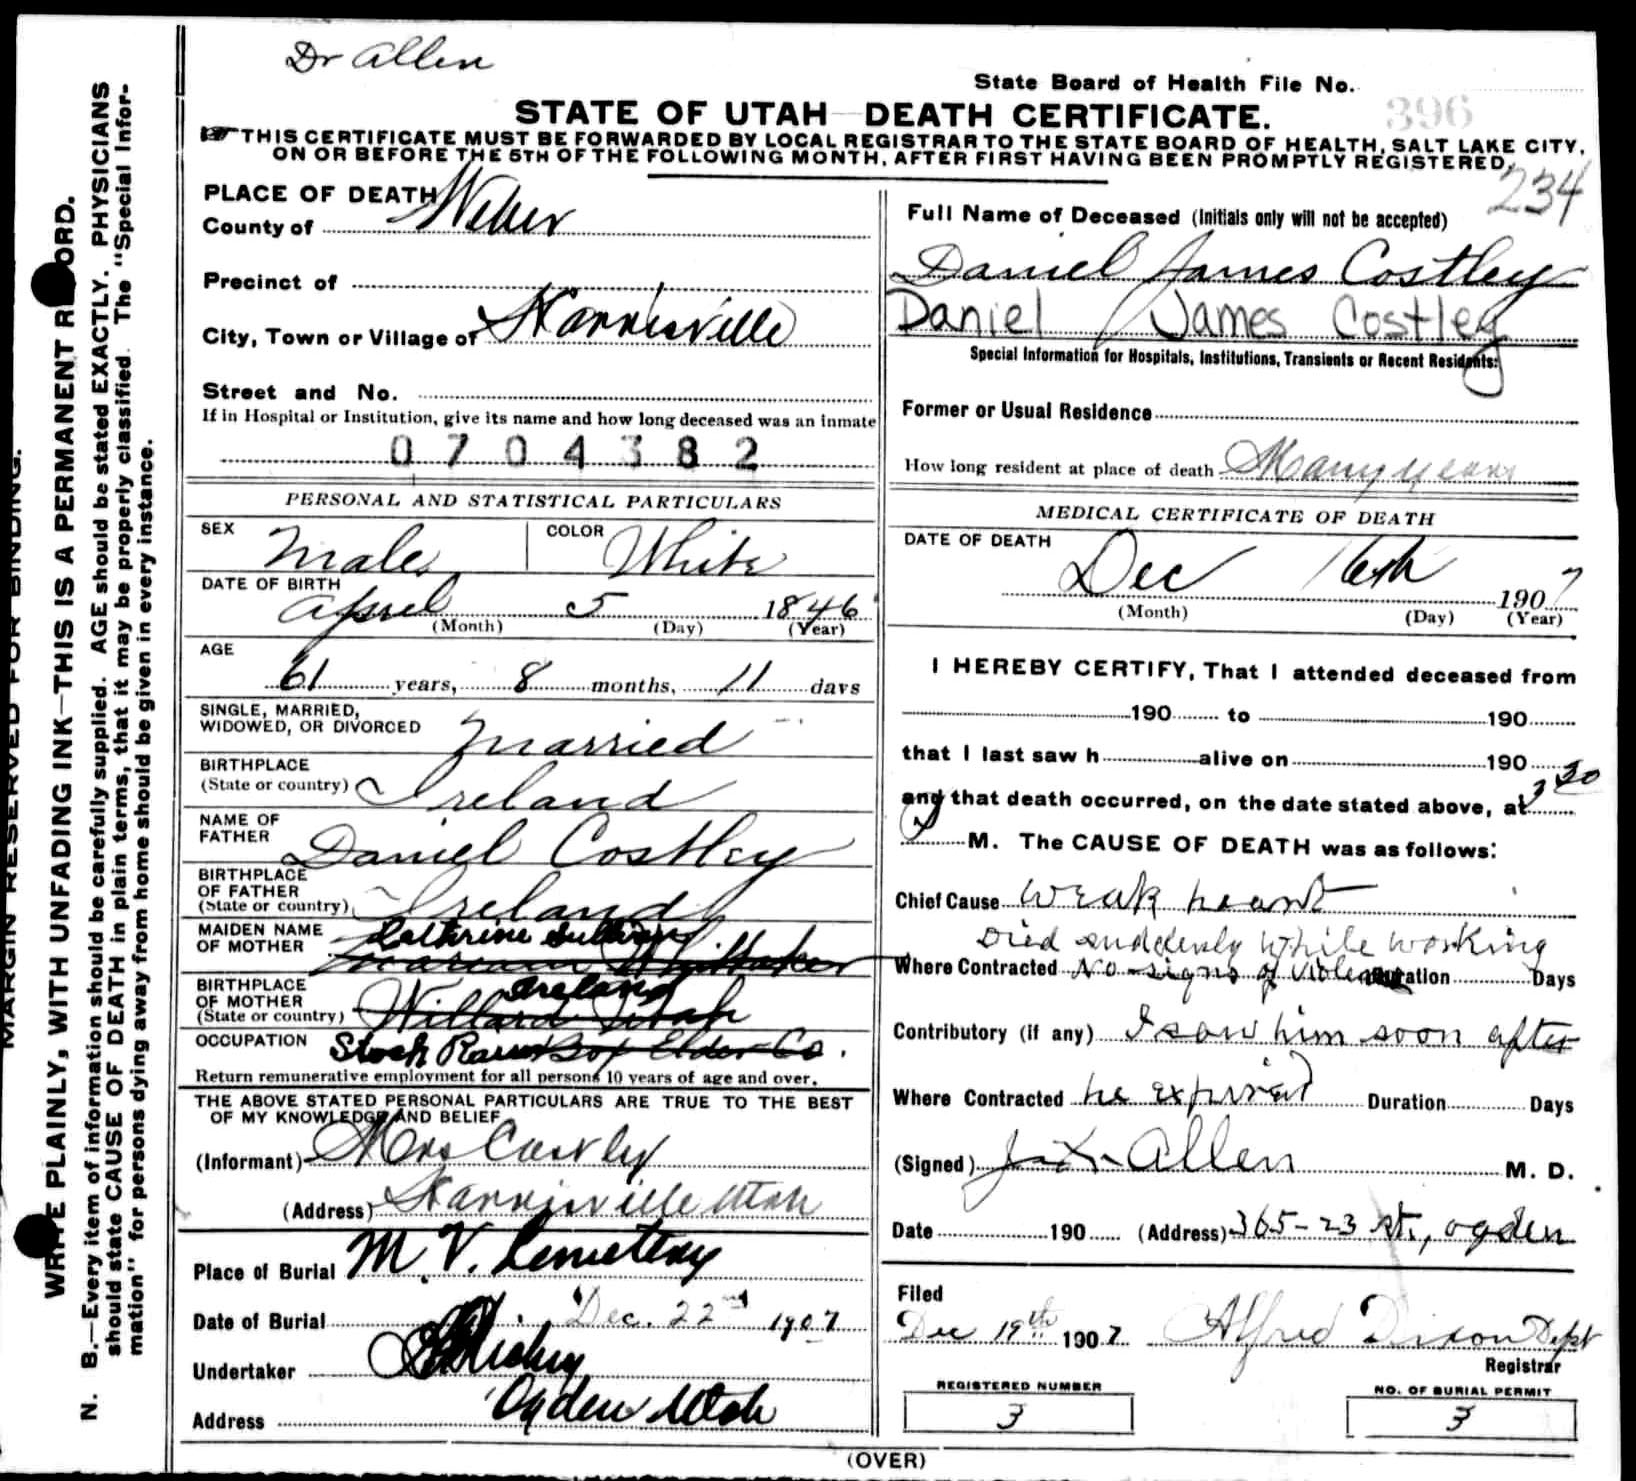 Dr Allen
State Board of Health File No.
396
STATE OF UTAH—DEATH CERTIFICATE.
THIS CERTIFICATE MUST BE FORWARDED BY LOCAL REGISTRAR TO THE STATE BOARD OF HEALTH, SALT LAKE CITY,
ON OR BEFORE THE 5TH OF THE FOLLOWING MONTH, AFTER FIRST HAVING BEEN PROMPTLY REGISTERED.
234
MARGIN RESERVED FOR BINDING.
WRITE PLAINLY, WITH UNFADING INK—THIS IS A PERMANENT RECORD.
N. B.—Every item of information should be carefully supplied. AGE should be stated EXACTLY. PHYSICIANS
should state CAUSE OF DEATH in plain terms, that it may be properly classified. The "Special Infor-
mation" for persons dying away from home should be given in every instance.
PLACE OF DEATH
County of Weber
Precinct of
City, Town or Village of Harrisville
Street and No.
If in Hospital or Institution, give its name and how long deceased was an inmate
0704382
PERSONAL AND STATISTICAL PARTICULARS
SEX Male COLOR White
DATE OF BIRTH
April 5 1846
(Month) (Day) (Year)
AGE
61 years, 8 months, 11 days
SINGLE, MARRIED,
WIDOWED, OR DIVORCED Married
BIRTHPLACE
(State or country) Ireland
NAME OF
FATHER Daniel Costley
BIRTHPLACE
OF FATHER
(State or country) Ireland
MAIDEN NAME
OF MOTHER Cathrine Sullivan
Whittaker
BIRTHPLACE
OF MOTHER Ireland
(State or country) Willard Utah
OCCUPATION Stock Box Elder Co.
Return remunerative employment for all persons 10 years of age and over.
THE ABOVE STATED PERSONAL PARTICULARS ARE TRUE TO THE BEST
OF MY KNOWLEDGE AND BELIEF
(Informant) Mrs Costley
(Address) Harrisville Utah
Place of Burial M. V. Cemetery
Date of Burial Dec. 22nd 1907
Undertaker
Address Ogden Utah
Full Name of Deceased (Initials only will not be accepted)
Daniel James Costley
Daniel James Costley
Special Information for Hospitals, Institutions, Transients or Recent Residents:
Former or Usual Residence
How long resident at place of death Many years
MEDICAL CERTIFICATE OF DEATH
DATE OF DEATH
Dec 16th 1907
(Month) (Day) (Year)
I HEREBY CERTIFY, That I attended deceased from
190 to 190
that I last saw h alive on 190
and that death occurred, on the date stated above, at 3 30
M. The CAUSE OF DEATH was as follows:
Chief Cause weak heart
Died suddenly while working
Where Contracted No signs of violence Duration Days
Contributory (if any) I saw him soon after
Where Contracted he expired Duration Days
(Signed) Allen M. D.
Date 190 (Address) 365-23 st., Ogden
Filed
Dec 19th 1907 Alfred Dixon Dept
Registrar
REGISTERED NUMBER
3
NO. OF BURIAL PERMIT
3
(OVER)